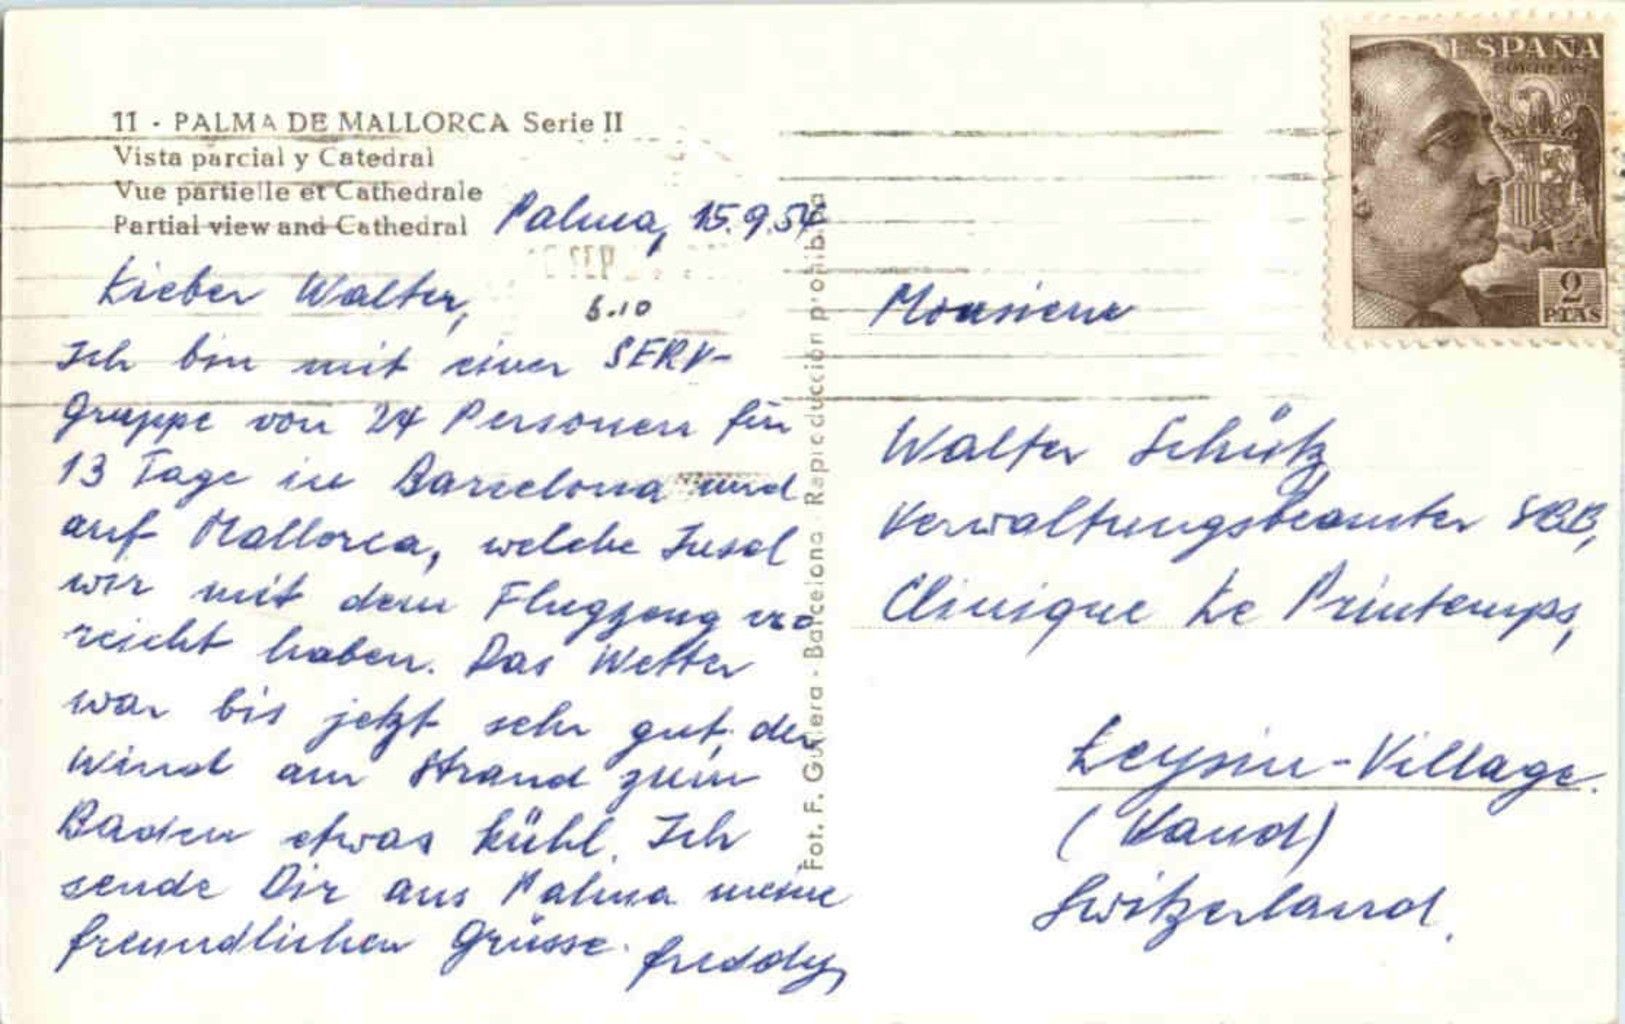 11 - PALMA DE MALLORCA Serie II
Vista parcial y Catedral
Vue partielle et Cathedrale
Partial view and Cathedral
Palma, 15.9.54
Lieber Walter,
6.10
Ich bin mit einer SERV-
Gruppe von 24 Personen für
13 Tage in Barcelona und
auf Mallorca, welche Insel
wir mit dem Flugzeug er-
reicht haben. Das Wetter
war bis jetzt sehr gut, der
Wind am Strand zum
Baden etwas kühl. Ich
sende Dir aus Palma meine
freundlichen Grüsse. Freddy
Fot. F. Guilera - Barcelona - Reproducción prohibida
ESPAÑA
CORREOS
2
PTAS
Monsieur
Walter Schütz
Verwaltungsbeamter SBB,
Clinique Le Printemps,
Leysin-Village.
(Vaud)
Switzerland.